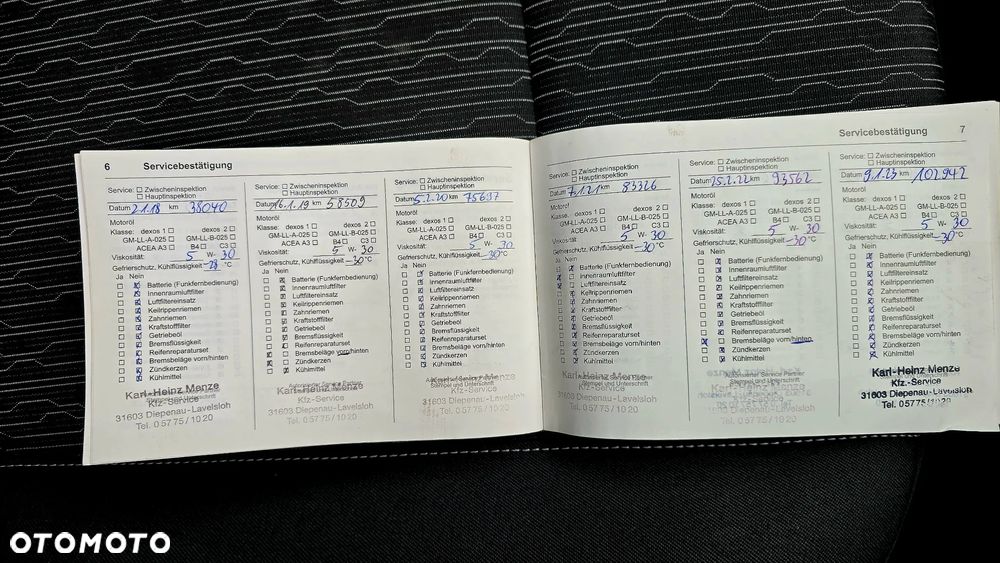 6 Servicebestätigung
Service: ☐ Zwischeninspektion
☐ Hauptinspektion
Datum 2.1.18 km 38040
Motoröl
Klasse: dexos 1 ☐ dexos 2 ☐
GM-LL-A-025 ☐ GM-LL-B-025 ☐
ACEA A3 ☐ B4 ☐ C3 ☐
Viskosität: 5 W- 30
Gefrierschutz, Kühlflüssigkeit °C
Ja Nein
Batterie (Funkfernbedienung)
Innenraumluftfilter
Luftfiltereinsatz
Keilrippenriemen
Zahnriemen
Kraftstofffilter
Getriebeöl
Bremsflüssigkeit
Reifenreparaturset
Bremsbeläge vorn/hinten
Zündkerzen
Kühlmittel
Karl-Heinz Menze
Kfz.-Service
31603 Diepenau-Lavelsloh
Tel. 0 57 75 / 10 20
Service: ☐ Zwischeninspektion
☐ Hauptinspektion
Datum 16.1.19 km 58509
Motoröl
Klasse: dexos 1 ☐ dexos 2 ☐
GM-LL-A-025 ☐ GM-LL-B-025 ☐
ACEA A3 ☐ B4 ☐ C3 ☐
Viskosität: 5 W- 30
Gefrierschutz, Kühlflüssigkeit -30 °C
Ja Nein
Batterie (Funkfernbedienung)
Innenraumluftfilter
Luftfiltereinsatz
Keilrippenriemen
Zahnriemen
Kraftstofffilter
Getriebeöl
Bremsflüssigkeit
Reifenreparaturset
Bremsbeläge vorn/hinten
Zündkerzen
Kühlmittel
Autorisierter Service Partner
Stempel und Unterschrift
Karl-Heinz Menze
Kfz.-Service
31603 Diepenau-Lavelsloh
Tel. 0 57 75 / 10 20
Service: ☐ Zwischeninspektion
☐ Hauptinspektion
Datum 5.2.20 km 75697
Motoröl
Klasse: dexos 1 ☐ dexos 2 ☐
GM-LL-A-025 ☐ GM-LL-B-025 ☐
ACEA A3 ☐ B4 ☐ C3 ☐
Viskosität: 5 W- 30
Gefrierschutz, Kühlflüssigkeit -30 °C
Ja Nein
Batterie (Funkfernbedienung)
Innenraumluftfilter
Luftfiltereinsatz
Keilrippenriemen
Zahnriemen
Kraftstofffilter
Getriebeöl
Bremsflüssigkeit
Reifenreparaturset
Bremsbeläge vorn/hinten
Zündkerzen
Kühlmittel
Stempel und Unterschrift
Karl-Heinz Menze
Kfz.-Service
31603 Diepenau-Lavelsloh
Tel. 0 57 75 / 10 20
Servicebestätigung 7
Service: ☐ Zwischeninspektion
☐ Hauptinspektion
Datum 7.1.21 km 83326
Motoröl
Klasse: dexos 1 ☐ dexos 2 ☐
GM-LL-A-025 ☐ GM-LL-B-025 ☐
ACEA A3 ☐ B4 ☐ C3 ☐
Viskosität: 5 W- 30
Gefrierschutz, Kühlflüssigkeit -30 °C
Ja Nein
Batterie (Funkfernbedienung)
Innenraumluftfilter
Luftfiltereinsatz
Keilrippenriemen
Zahnriemen
Kraftstofffilter
Getriebeöl
Bremsflüssigkeit
Reifenreparaturset
Bremsbeläge vorn/hinten
Zündkerzen
Kühlmittel
Karl-Heinz Menze
Kfz.-Service
31603 Diepenau-Lavelsloh
Service: ☐ Zwischeninspektion
☐ Hauptinspektion
Datum 25.2.22 km 93562
Motoröl
Klasse: dexos 1 ☐ dexos 2 ☐
GM-LL-A-025 ☐ GM-LL-B-025 ☐
ACEA A3 ☐ B4 ☐ C3 ☐
Viskosität: 5 W- 30
Gefrierschutz, Kühlflüssigkeit -30 °C
Ja Nein
Batterie (Funkfernbedienung)
Innenraumluftfilter
Luftfiltereinsatz
Keilrippenriemen
Zahnriemen
Kraftstofffilter
Getriebeöl
Bremsflüssigkeit
Reifenreparaturset
Bremsbeläge vorn/hinten
Zündkerzen
Kühlmittel
Autorisierter Service Partner
Stempel und Unterschrift
Service: ☐ Zwischeninspektion
☐ Hauptinspektion
Datum 9.1.23 km 102942
Motoröl
Klasse: dexos 1 ☐ dexos 2 ☐
GM-LL-A-025 ☐ GM-LL-B-025 ☐
ACEA A3 ☐ B4 ☐ C3 ☐
Viskosität: 5 W- 30
Gefrierschutz, Kühlflüssigkeit -30 °C
Ja Nein
Batterie (Funkfernbedienung)
Innenraumluftfilter
Luftfiltereinsatz
Keilrippenriemen
Zahnriemen
Kraftstofffilter
Getriebeöl
Bremsflüssigkeit
Reifenreparaturset
Bremsbeläge vorn/hinten
Zündkerzen
Kühlmittel
Karl-Heinz Menze
Kfz.-Service
31603 Diepenau-Lavelsloh
Tel. 0 57 75 / 10 20
OTOMOTO